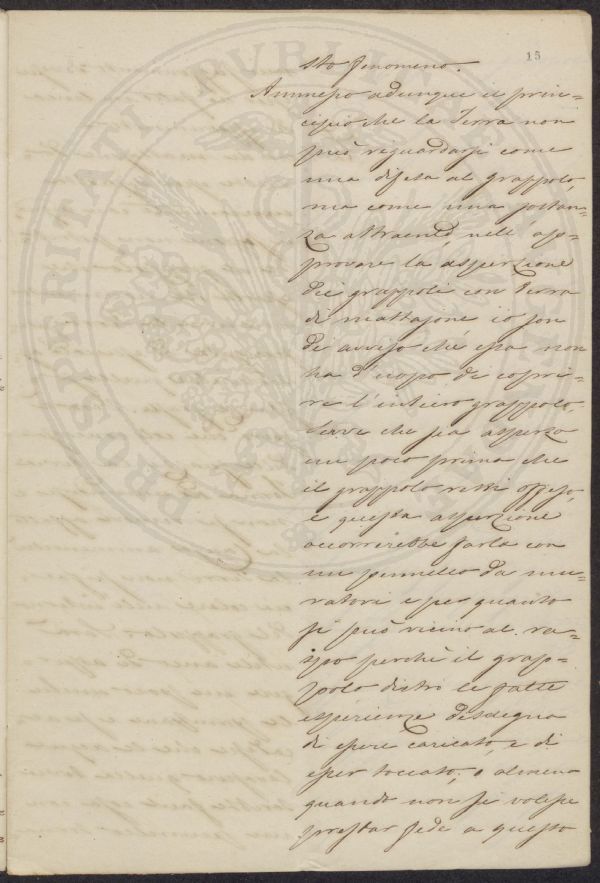 15
sto fenomeno.
Ammesso adunque il prin=
cipio che la Terra non
può riguardarsi come
una difesa al grappolo,
ma come una sostan=
za attraente, nell' ap=
provare la aspersione
dei grappoli con Terra
di mattajone io son
di avviso che essa non
ha d'uopo di copri=
re l'intiero grappolo,
serve che sia asperso
un poco prima che
il grappolo resti offeso,
e questa aspersione
occorrerebbe farla con
un pennello da mu=
ratori e per quanto
si può vicino al ra=
spo perchè il grap=
polo dietro le fatte
esperienze disdegna
di essere caricato, e di
esser toccato; o almeno
quando non si volesse
prestar fede a questo
PROSPERITATI PUBLICAE